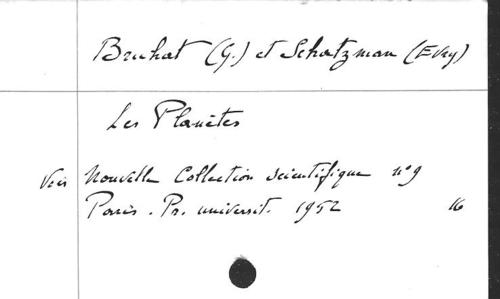 Bruhat (G.) et Schatzman (Evry)
Les Planètes
Voir Nouvelle Collection scientifique n°9
Paris. Pr. universit. 1952 16